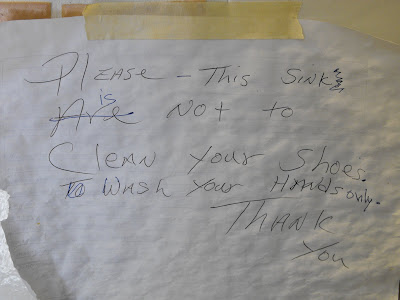 Please - This Sink
is
Are Not to
Clean Your Shoes.
To Wash Your Hands only.
Thank
You